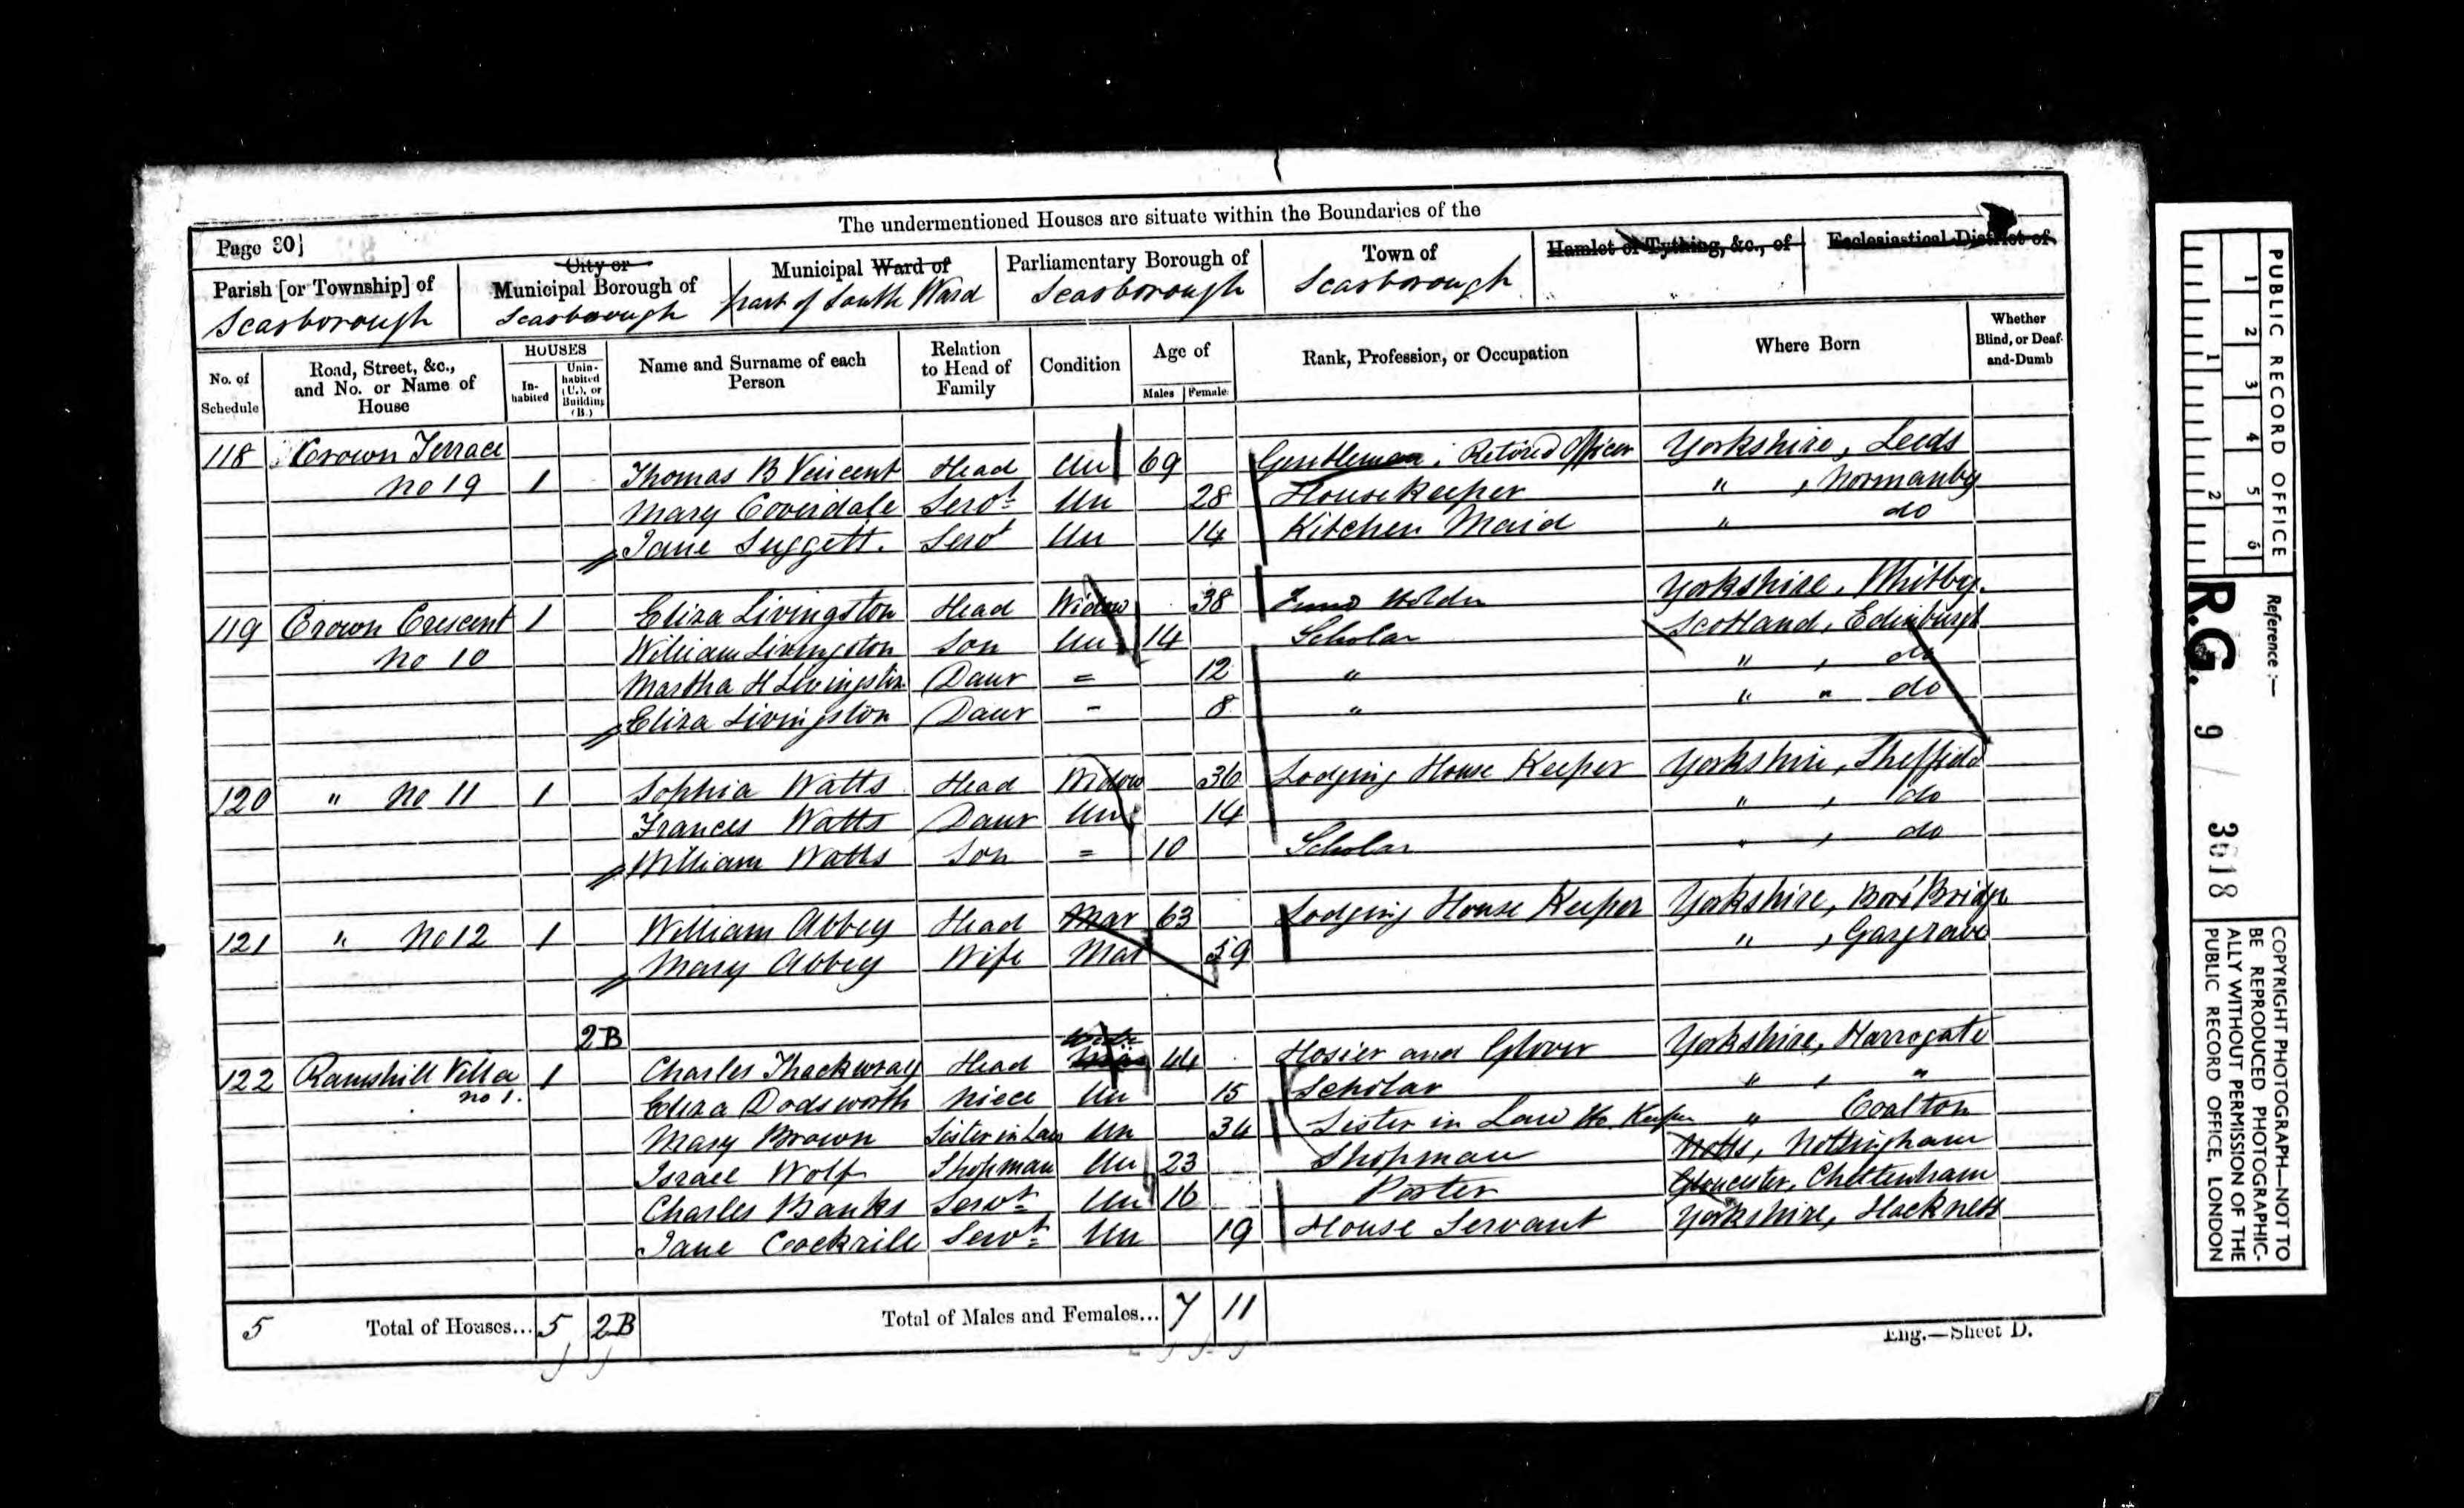 The undermentioned Houses are situate within the Boundaries of the
Page 30]
Parish [or Township] of
Scarborough
City or
Municipal Borough of
Scarborough
Municipal Ward of
part of South Ward
Parliamentary Borough of
Scarborough
Town of
Scarborough
Hamlet or Tything, &c., of
Ecclesiastical District of
No. of Schedule
Road, Street, &c., and No. or Name of House
HOUSES
In-habited
Unin-habited (U.), or Building (B.)
Name and Surname of each Person
Relation to Head of Family
Condition
Age of
Males
Females
Rank, Profession, or Occupation
Where Born
Whether Blind, or Deaf-and-Dumb
118 Crown Terrace
No 19 1 Thomas B Vincent Head Un 69 Gentleman, Retired Officer Yorkshire, Leeds
Mary Coverdale Servt Un 28 Housekeeper " , Normanby
Jane Suggett. Servt Un 14 Kitchen Maid " do
119 Crown Crescent 1 Eliza Livingston Head Widow 38 Fund Holder Yorkshire, Whitby.
No 10 William Livingston Son Un 14 Scholar Scotland, Edinburgh
Martha H Livingston Daur = 12 " " , do
Eliza Livingston Daur - 8 " " " do
120 " No 11 1 Sophia Watts Head Widow 36 Lodging House Keeper Yorkshire, Sheffield
Frances Watts Daur Un 14 " , do
William Watts Son = 10 Scholar " , do
121 " No 12 1 William Abbey Head Mar 63 Lodging House Keeper Yorkshire, Boro'Bridge
Mary Abbey Wife Mar 59 " , Gargrave
2B
122 Ramshill Villa 1 Charles Thackwray Head 44 Hosier and Glover Yorkshire, Harrogate
no 1. Eliza Dodsworth Niece Un 15 Scholar " , "
Mary Brown Sister in Law Un 34 Sister in Law Ho. Keeper " Coalton
Israel Wolf Shopman Un 23 Shopman Notts, Nottingham
Charles Banks Servt Un 16 Porter Gloucester, Cheltenham
Jane Cockrill Servt Un 19 House Servant Yorkshire, Hackness
5 Total of Houses... 5 2B Total of Males and Females... 7 11
Eng.—Sheet D.
PUBLIC RECORD OFFICE
1 2 3 4 5 6
1 2
Reference:—
R.G. 9 / 3618
COPYRIGHT PHOTOGRAPH—NOT TO
BE REPRODUCED PHOTOGRAPHIC-
ALLY WITHOUT PERMISSION OF THE
PUBLIC RECORD OFFICE, LONDON